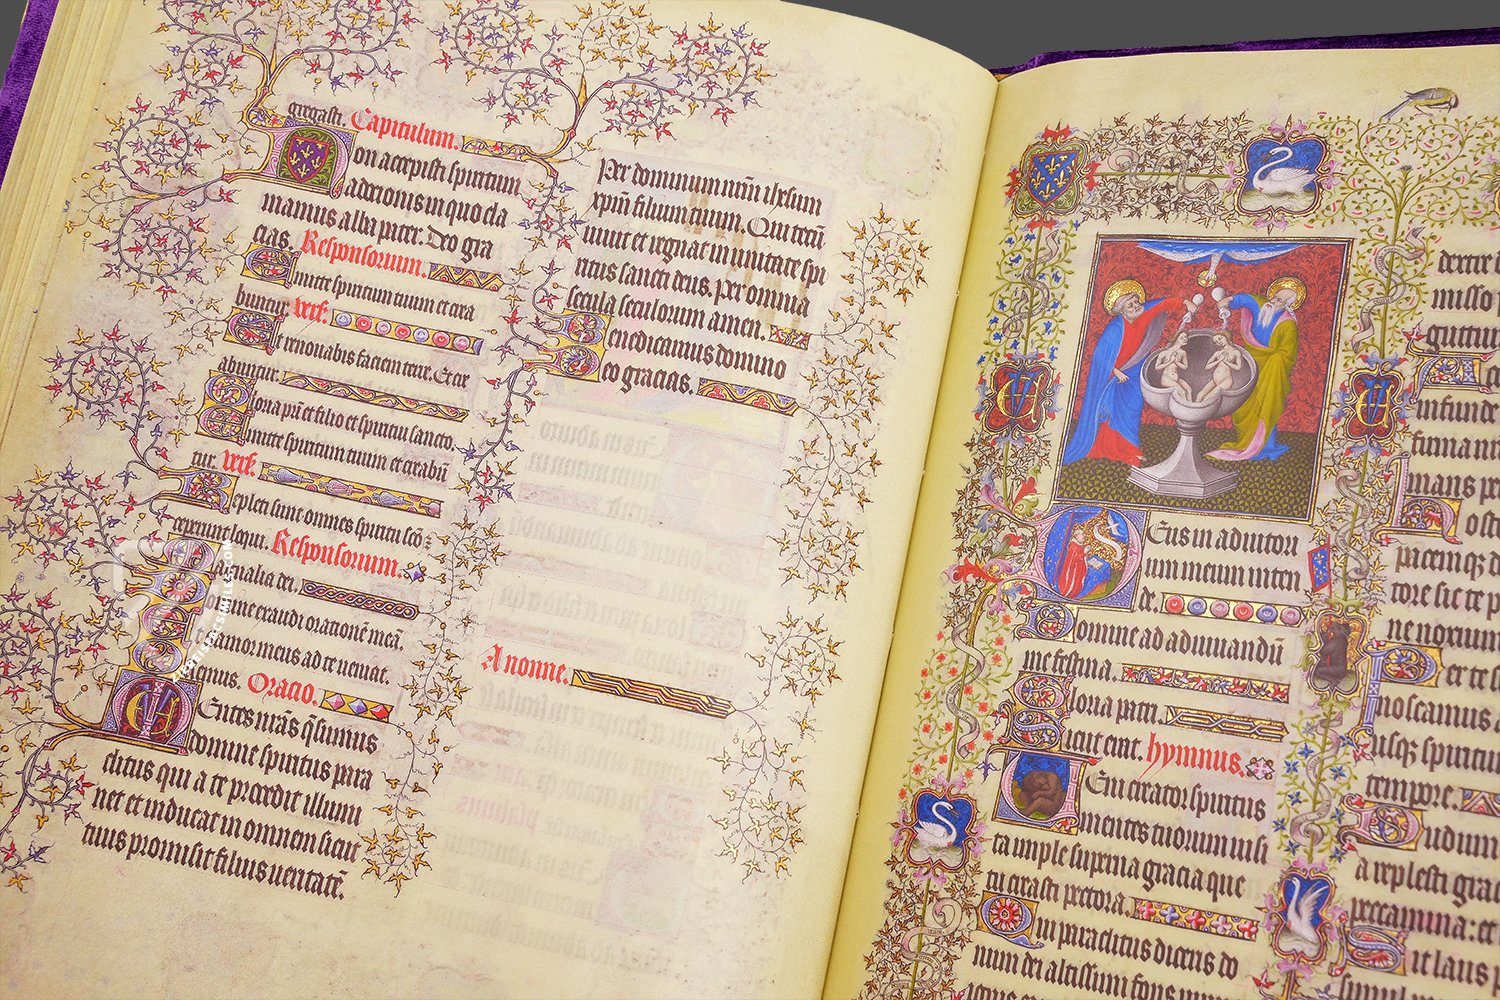 gregasti. Capitulum.
Non accepisti spiritum
adoptionis in quo cla
mamus abba pater. Deo gra
cias. Responsorium.
Emitte spiritum tuum et crea
buntur. Vers.
Et renovabis faciem terre. Et cre
abuntur.
Gloria pri et filio et spiritui sancto.
Emitte spiritum tuum et creabū
tur. Vers.
Repleti sunt omnes spiritu scō:
ceperunt loqui. Responsorium.
Magnalia dei.
Domine exaudi orationē meā.
Et clamor meus ad te veniat.
Oremus. Oracio.
Mentes nrās q̄sumus
domine spiritus para
clitus qui a te procedit illumi
net et inducat in omnem sicut
tuus promisit filius veritatē.
Per dominum nrm̄ ihesum
xpm̄ filium tuum. Qui tecū
vivit et regnat in unitate spi
ritus sancti deus. per omnia
secula seculorum amen.
Benedicamus domino
Deo gracias.
A nonne.
Deus in adiutori
um meum inten
de.
Domine ad adiuvandū
me festina.
Gloria patri.
Sicut erat. hymnus.
Veni creator spiritus
mentes tuorum visi
ta imple superna gracia que
tu creasti pectora.
Qui paraclitus diceris do
num dei altissimi fons
misso
guttur
infunde
firmans
mans
Hostem
pacemq;
tore sic te p
ne noxium
Per te s
noscamus
usq; spiritu
tempore.
a replesti
precamina: et
Sit laus p
simul
ZIEREIS FACSIMILES.COM